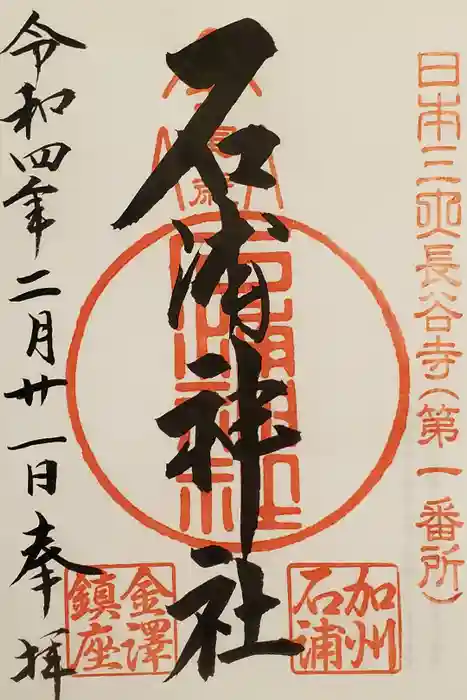 日本三所長谷寺(第一番所)
石浦神社
石浦神社
加州
石浦
金澤
鎮座
令和四年二月廿一日奉拝